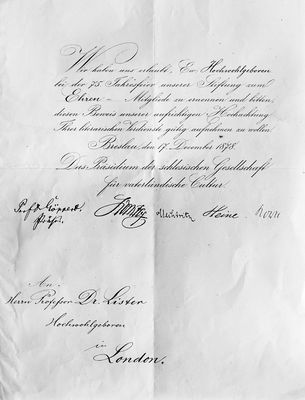 Wir haben uns erlaubt, Ew. Hochwohlgeboren
bei der 75. Jahresfeier unserer Stiftung zum
Ehren – Mitgliede zu ernennen und bitten,
diesen Beweis unserer aufrichtigen Hochachtung
Ihrer literarischen Verdienste gütig aufnehmen zu wollen.
Breslau, den 17. December 1878.
Das Praesidium der schlesischen Gesellschaft
für vaterländische Cultur.
Prof. Dr. Göppert. Heine
An
Herrn Professor Dr. Lister
Hochwohlgeboren
in
London.